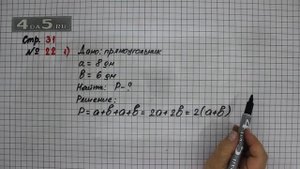 4DA5.RU
Стр. 31
№ 22 1) Дано: прямоугольник
a = 8 дм
в = 6 дм
Найти: P - ?
Решение:
P = a+в+a+в = 2a+2в = 2(a+в)